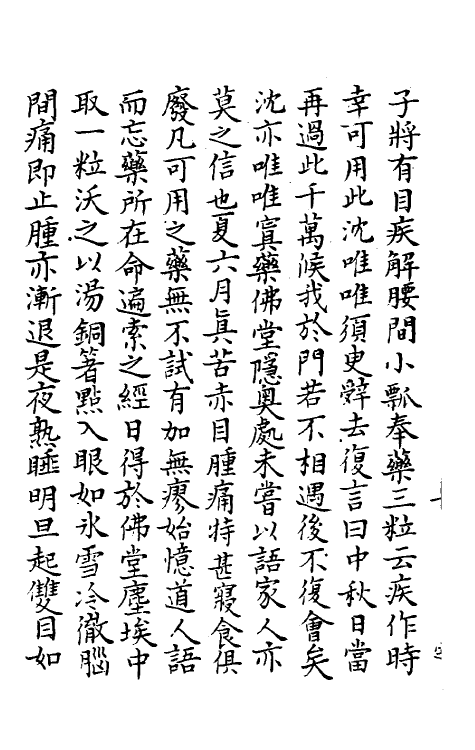 子將有目疾解腰間小瓢奉藥三粒云疾作時
幸可用此沈唯唯須更辭去復言曰中秋日當
再過此千萬候我於門若不相遇後不復會矣
沈亦唯唯寘藥佛堂隱奥處未嘗以語家人亦
莫之信也夏六月真苦赤目腫痛特甚寢食俱
廢凡可用之藥無不試有加無瘳始憶道人語
而忘藥所在命遍索之經日得於佛堂塵埃中
取一粒沃之以湯銅箸點入眼如氷雪冷徹腦
間痛即止腫亦漸退是夜熟睡明旦起雙目如